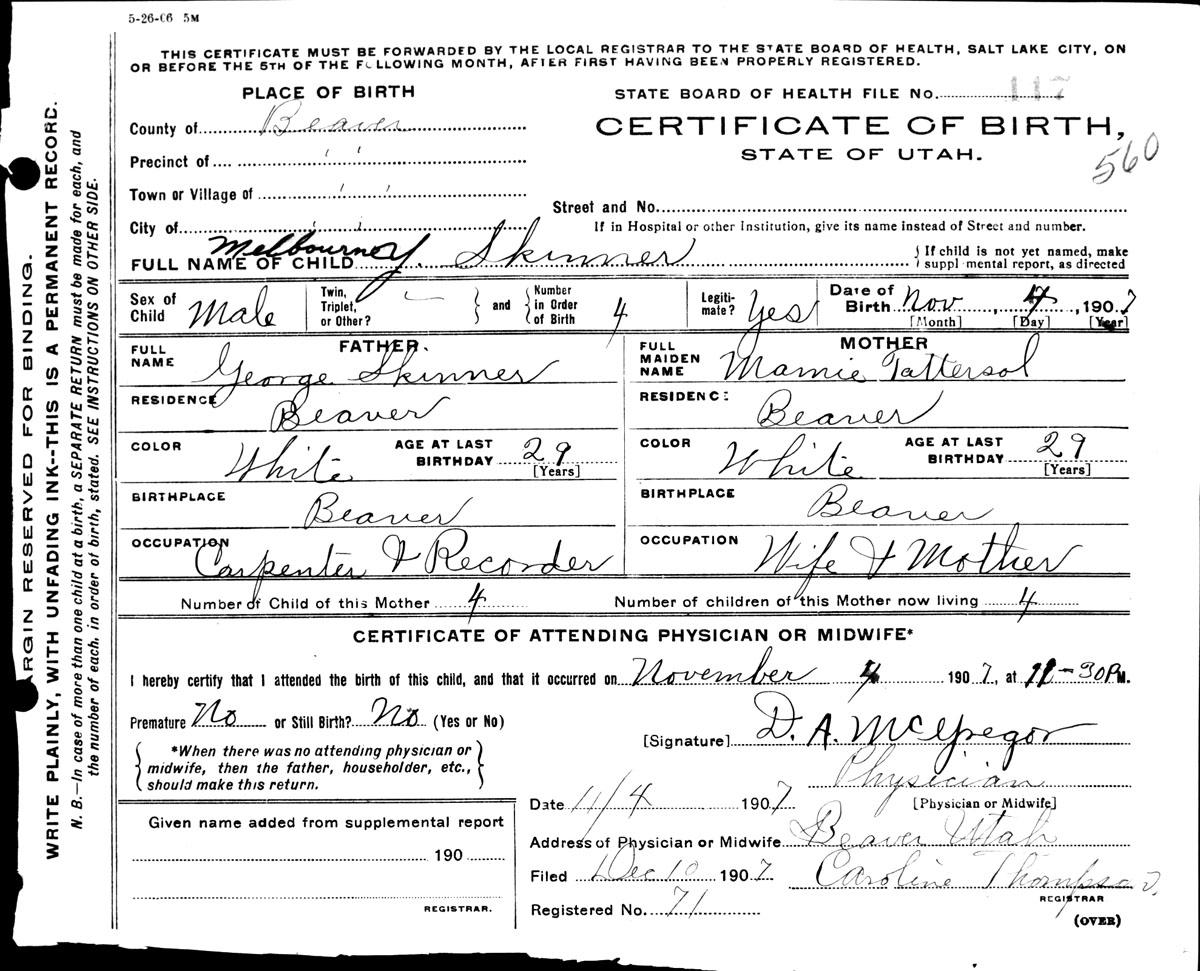 5-26-06 5M
THIS CERTIFICATE MUST BE FORWARDED BY THE LOCAL REGISTRAR TO THE STATE BOARD OF HEALTH, SALT LAKE CITY, ON
OR BEFORE THE 5TH OF THE FOLLOWING MONTH, AFTER FIRST HAVING BEEN PROPERLY REGISTERED.
PLACE OF BIRTH
STATE BOARD OF HEALTH FILE No. 117
County of Beaver
CERTIFICATE OF BIRTH,
STATE OF UTAH.
560
Precinct of " "
Town or Village of " "
Street and No.
City of " "
If in Hospital or other Institution, give its name instead of Street and number.
FULL NAME OF CHILD Melbourne Y. Skinner
{ If child is not yet named, make
supplmental report, as directed
Sex of Child Male
Twin, Triplet, or Other? —
and
Number in Order of Birth 4
Legiti-mate? Yes
Date of Birth Nov 4, 1907
[Month] [Day] [Year]
FATHER.
FULL NAME George Skinner
RESIDENCE Beaver
COLOR White
AGE AT LAST BIRTHDAY 29
[Years]
BIRTHPLACE Beaver
OCCUPATION Carpenter & Recorder
MOTHER
FULL MAIDEN NAME Mamie Tattersol
RESIDENCE Beaver
COLOR White
AGE AT LAST BIRTHDAY 29
[Years]
BIRTHPLACE Beaver
OCCUPATION Wife & Mother
Number of Child of this Mother 4
Number of children of this Mother now living 4
CERTIFICATE OF ATTENDING PHYSICIAN OR MIDWIFE*
I hereby certify that I attended the birth of this child, and that it occurred on November 4 1907, at 11-30 P.M.
Premature No or Still Birth? No (Yes or No)
[Signature] D. A. McGregor
{ *When there was no attending physician or
midwife, then the father, householder, etc.,
should make this return. }
Physician
[Physician or Midwife]
Date 11/4 1907
Address of Physician or Midwife Beaver Utah
Filed Dec 10 1907
Caroline Thompson
REGISTRAR
Registered No. 71
(OVER)
Given name added from supplemental report
190
REGISTRAR.
ARGIN RESERVED FOR BINDING.
WRITE PLAINLY, WITH UNFADING INK--THIS IS A PERMANENT RECORD.
N. B.—In case of more than one child at a birth, a SEPARATE RETURN must be made for each, and
the number of each, in order of birth, stated. SEE INSTRUCTIONS ON OTHER SIDE.